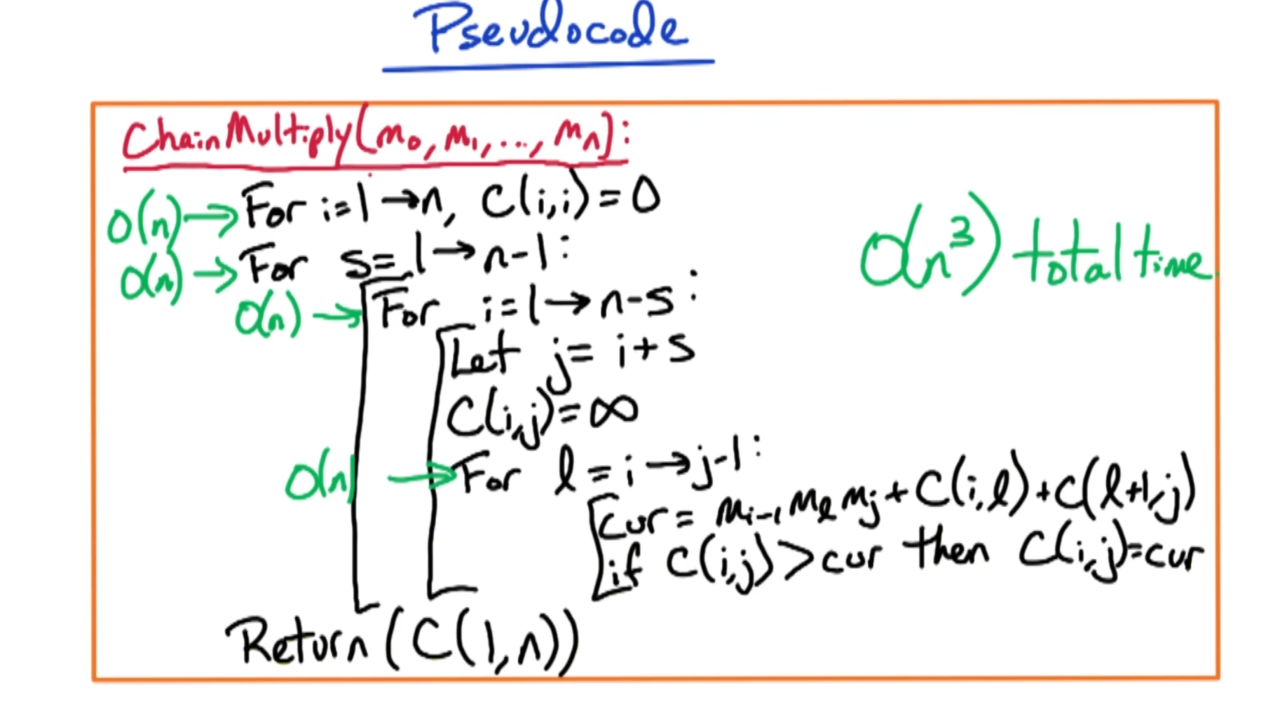 Pseudocode
ChainMultiply(m₀, m₁, ..., mₙ):
O(n) → For i=1→n, C(i,i)=0
O(n) → For s=1→n-1:
O(n³) total time
O(n) → For i=1→n-s:
Let j= i+s
C(i,j)=∞
O(n) → For l=i→j-1:
cur= mᵢ₋₁ mₗ mⱼ + C(i,l)+C(l+1,j)
if C(i,j)>cur then C(i,j)=cur
Return(C(1,n))